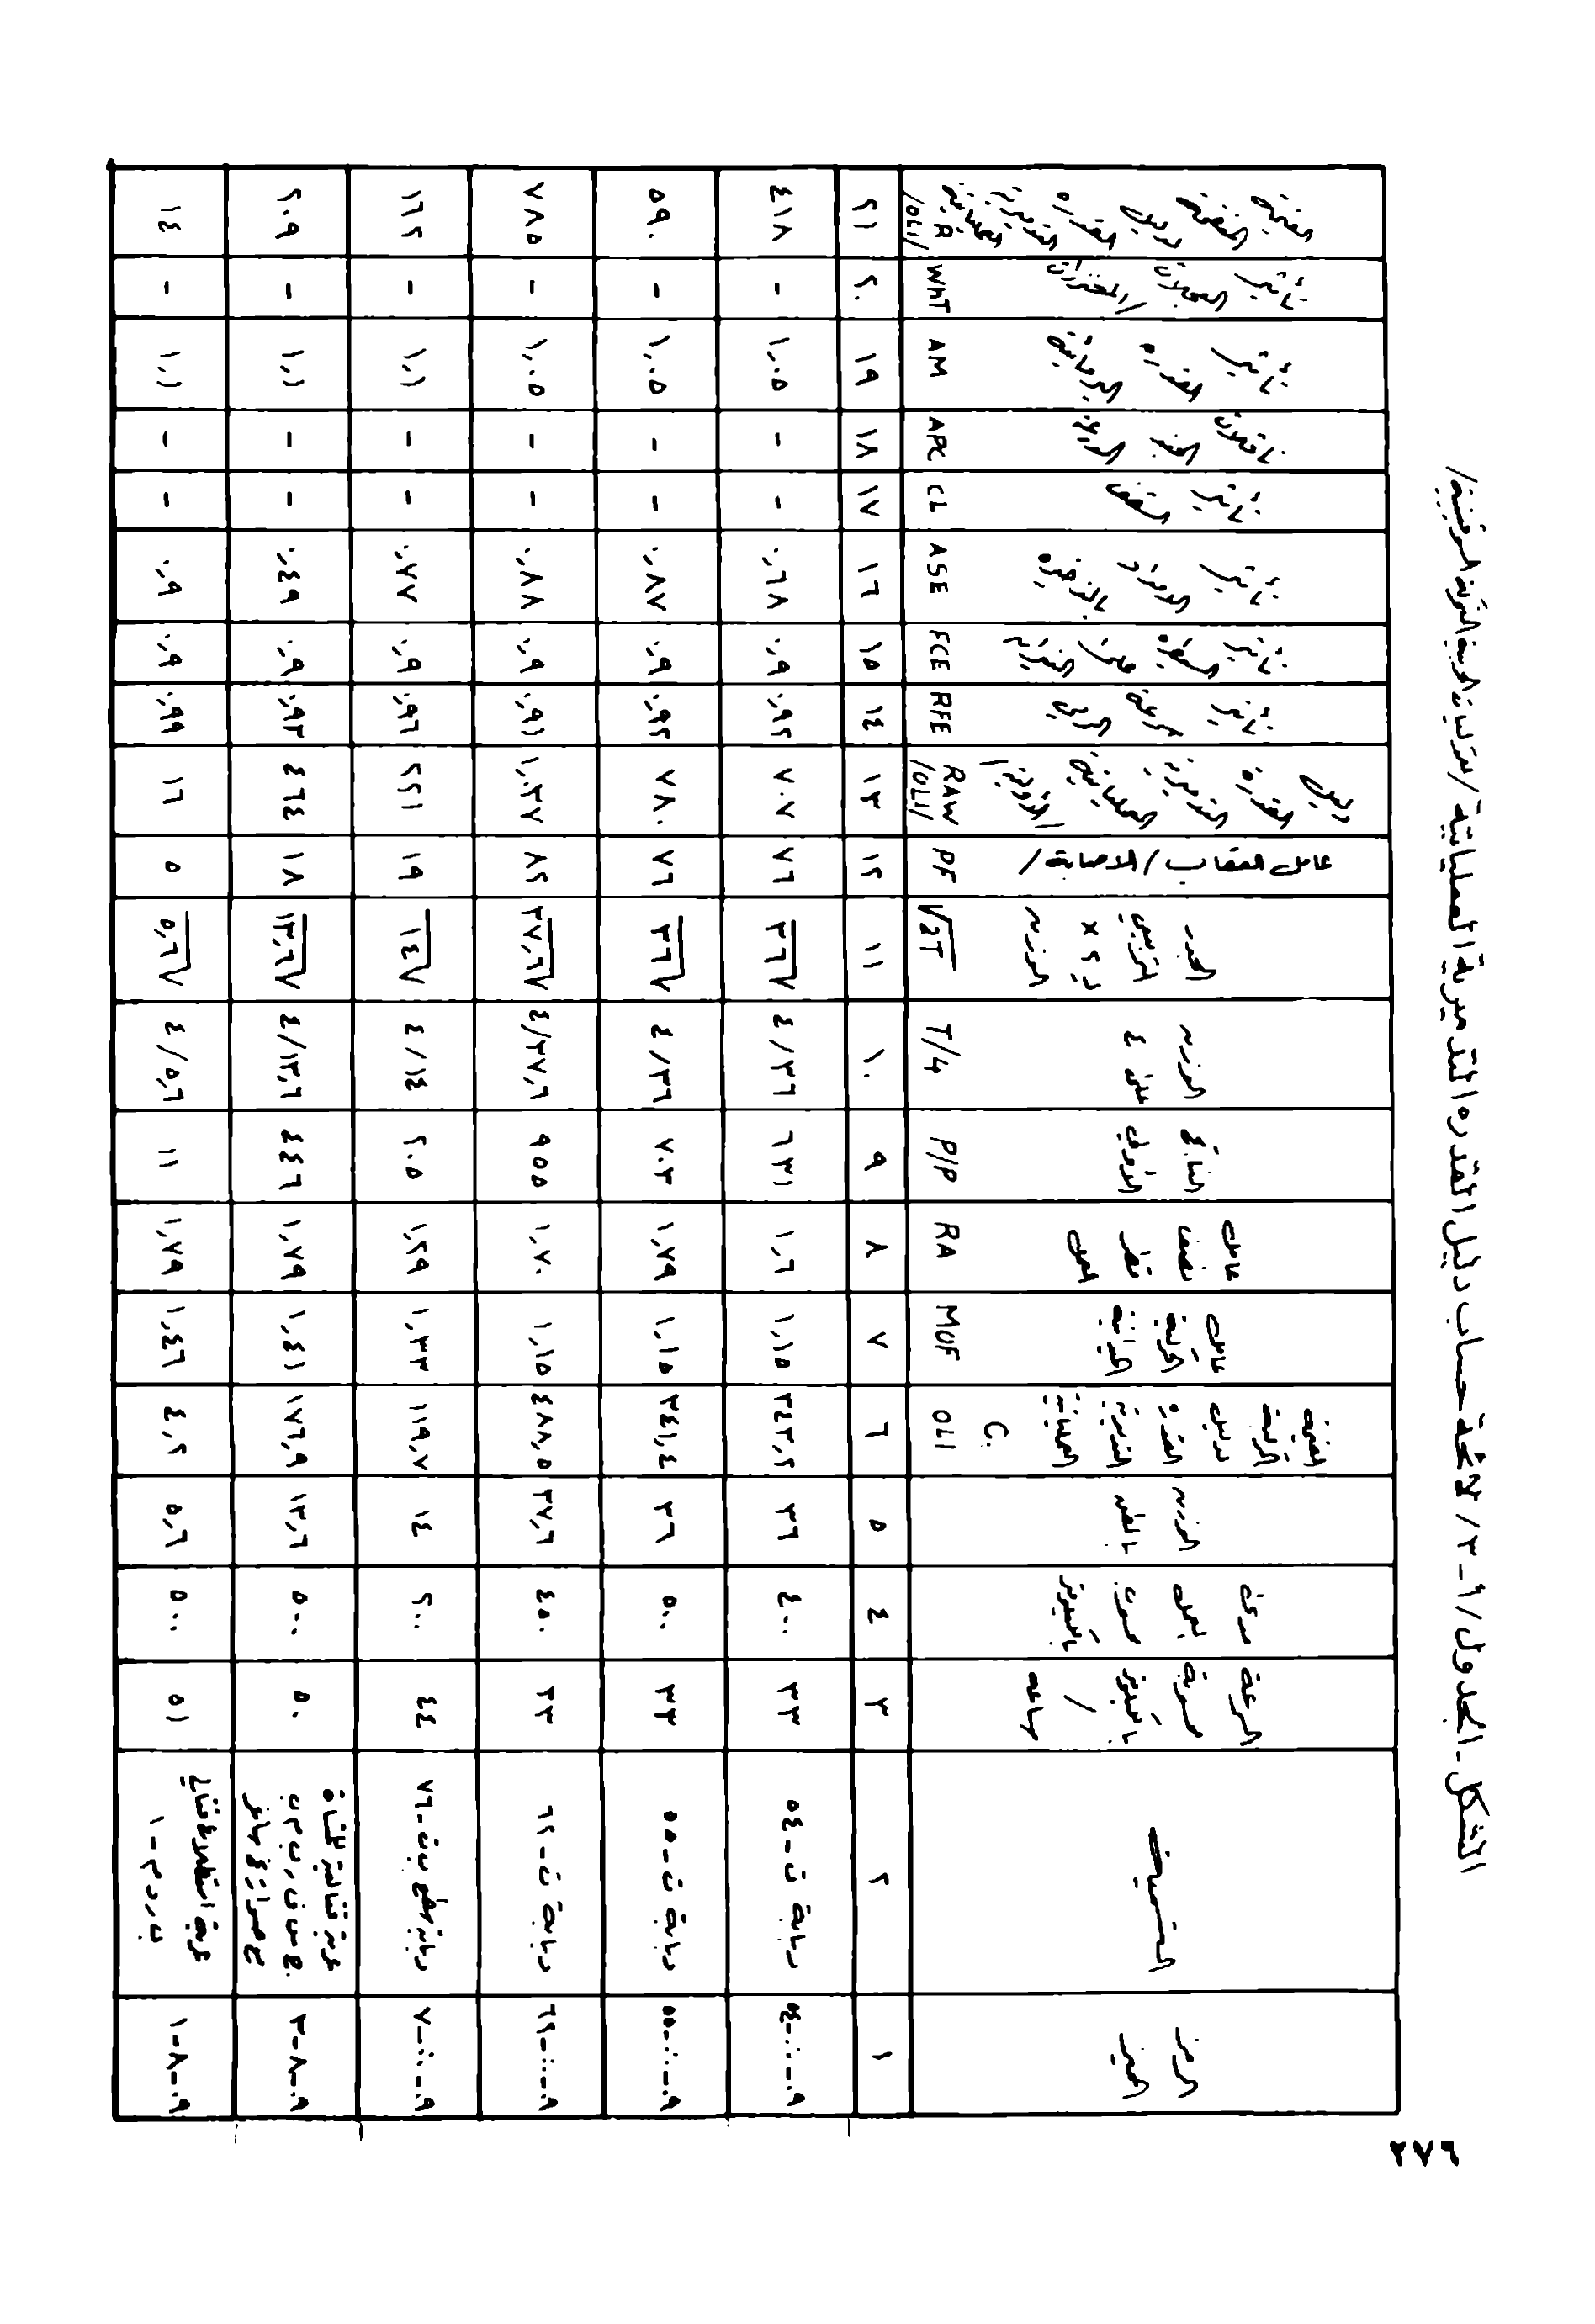 الشكل ـ الجدول / ٩ - ٣ / لائحة حساب دليل القدره التدميرية العملياتية / لعربات الحربية البرية السوفيتية /
الرمز المميز | التسمية | السرعة محسوبة بالكيلومتر / ساعه | مدى العمل محسوب بالكيلومتر | الوزن بالطن | القيمة المركبة لدليل القدره التدميرية العملياتية C. OLI | عامل الحركية الميدانية MOF | عامل نصف قطر العمل RA | الناتج الأولي P/P | الوزن على ٤ T/4 | الجذر التربيعي لـ ٢ × الوزن √2T | عامل العقاب / الاصابة / PF | دليل القدره التدميرية العملياتية / الأولية / RAW /OLI/ | تأثير سرعة الرمي RFE | تأثير السيطره على النيران FCE | تأثير الامداد بالذخيره ASE | تأثير السقف CL | ناقلات الجند المدرعة APC | تأثير القدره البرمائية AM | تأثير العجلات / المجنزرات WhT | القيمة المنقحة لدليل القدره التدميرية العملياتية R /OLI/
١ | ٢ | ٣ | ٤ | ٥ | ٦ | ٧ | ٨ | ٩ | ١٠ | ١١ | ١٢ | ١٣ | ١٤ | ١٥ | ١٦ | ١٧ | ١٨ | ١٩ | ٢٠ | ٢١
٠٩-٠٠-٥٤ | دبابة ت - ٥٤ | ٣٣ | ٤٠٠ | ٣٦ | ٣٤٣,٢ | ١,١٥ | ١,٦ | ٦٣١ | ٤/٣٦ | √٣٦ | ٧٦ | ٧٠٧ | ٠,٩٢ | ٠,٩ | ٠,٦٨ | - | - | ١,٠٥ | - | ٤١٨
٠٩-٠٠-٥٥ | دبابة ت - ٥٥ | ٣٣ | ٥٠٠ | ٣٦ | ٣٤١,٤ | ١,١٥ | ١,٧٩ | ٧٠٣ | ٤/٣٦ | √٣٦ | ٧٦ | ٧٨٠ | ٠,٩٢ | ٠,٩ | ٠,٨٧ | - | - | ١,٠٥ | - | ٥٩٠
٠٩-٠٠-٦٢ | دبابة ت - ٦٢ | ٣٣ | ٤٥٠ | ٣٧,٦ | ٤٨٨,٥ | ١,١٥ | ١,٧٠ | ٩٥٥ | ٤/٣٧,٦ | √٣٧,٦ | ٨٢ | ١,٠٣٧ | ٠,٩١ | ٠,٩ | ٠,٨٨ | - | - | ١,٠٥ | - | ٧٨٥
٠٩-٠٠-٧ | دبابة استطلاع ب ت - ٧٦ | ٤٤ | ٢٠٠ | ١٤ | ١١٩,٧ | ١,٣٣ | ١,٢٩ | ٢٠٥ | ٤/١٤ | √١٤ | ١٩ | ٢٢١ | ٠,٩٦ | ٠,٩ | ٠,٧٧ | - | - | ١,١ | - | ١٦٢
٠٩-٨-٣ | عربة قتالية للمشاة ب م ب مع صواريخ ساغر | ٥٠ | ٥٠٠ | ١٣,٦ | ١٧٦,٩ | ١,٤١ | ١,٧٩ | ٤٤٦ | ٤/١٣,٦ | √١٣,٦ | ١٨ | ٤٦٤ | ٠,٩٣ | ٠,٩ | ٠,٤٩ | - | - | ١,١ | - | ٢٠٩
٠٩-٨-١ | عربة استطلاع قتالي ب ر د م - ١ | ٥١ | ٥٠٠ | ٥,٦ | ٤,٢ | ١,٤٦ | ١,٧٩ | ١١ | ٤/٥,٦ | √٥,٦ | ٥ | ١٦ | ٠,٩٩ | ٠,٩ | ٠,٩ | - | - | ١,١ | - | ١٤
٢٧٦